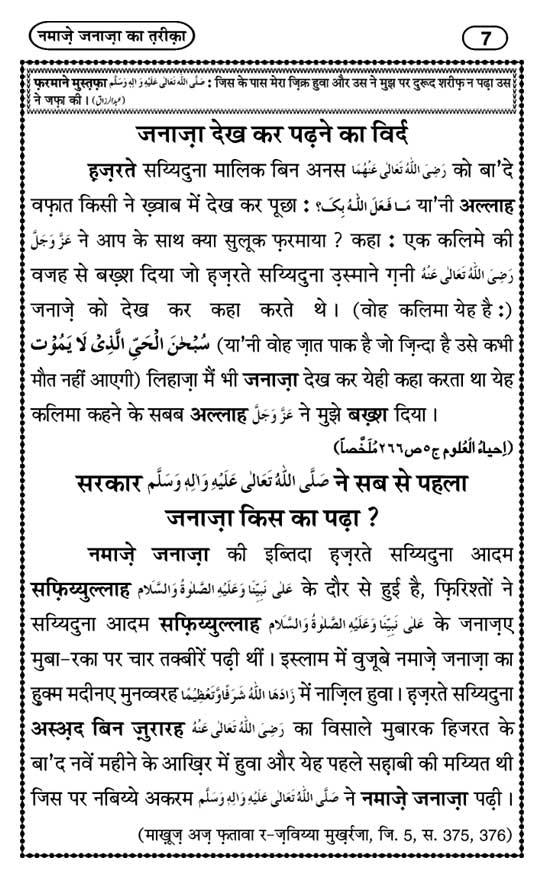 नमाज़े जनाज़ा का त़रीक़ा
7
फ़रमाने मुस्त़फ़ा صَلَّى اللّٰهُ تَعَالٰى عَلَيْهِ وَاٰلِهٖ وَسَلَّم : जिस के पास मेरा ज़िक्र हुवा और उस ने मुझ पर दुरूद शरीफ़ न पढ़ा उस
ने जफ़ा की । (عبدالرزاق)
जनाज़ा देख कर पढ़ने का विर्द
ह़ज़रते सय्यिदुना मालिक बिन अनस رَضِىَ اللّٰهُ تَعَالٰى عَنْهُمَا को बा'दे
वफ़ात किसी ने ख़्वाब में देख कर पूछा : مَا فَعَلَ اللّٰهُ بِكَ؟ या'नी अल्लाह
عَزَّ وَجَلَّ ने आप के साथ क्या सुलूक फ़रमाया ? कहा : एक कलिमे की
वजह से बख़्श दिया जो ह़ज़रते सय्यिदुना उ़स्माने ग़नी رَضِىَ اللّٰهُ تَعَالٰى عَنْهُ
जनाज़े को देख कर कहा करते थे । (वोह कलिमा येह है :)
سُبْحٰنَ الْحَىِّ الَّذِىْ لَا يَمُوْت (या'नी वोह ज़ात पाक है जो ज़िन्दा है उसे कभी
मौत नहीं आएगी) लिहाज़ा मैं भी जनाज़ा देख कर येही कहा करता था येह
कलिमा कहने के सबब अल्लाह عَزَّ وَجَلَّ ने मुझे बख़्श दिया ।
(اِحياءُ الْعُلوم ج٥ ص٢٦٦ مُلَخَّصاً)
सरकार صَلَّى اللّٰهُ تَعَالٰى عَلَيْهِ وَاٰلِهٖ وَسَلَّم ने सब से पहला
जनाज़ा किस का पढ़ा ?
नमाज़े जनाज़ा की इब्तिदा ह़ज़रते सय्यिदुना आदम
सफ़िय्युल्लाह عَلٰى نَبِيِّنَا وَعَلَيْهِ الصَّلٰوةُ وَالسَّلَام के दौर से हुई है, फ़िरिश्तों ने
सय्यिदुना आदम सफ़िय्युल्लाह عَلٰى نَبِيِّنَا وَعَلَيْهِ الصَّلٰوةُ وَالسَّلَام के जनाज़ए
मुबा-रका पर चार तक्बीरें पढ़ी थीं । इस्लाम में वुजूबे नमाज़े जनाज़ा का
हुक्म मदीनए मुनव्वरह زَادَهَا اللّٰهُ شَرَفًا وَّتَعْظِيْمًا में नाज़िल हुवा । ह़ज़रते सय्यिदुना
अस्अ़द बिन ज़ुरारह رَضِىَ اللّٰهُ تَعَالٰى عَنْهُ का विसाले मुबारक हिजरत के
बा'द नवें महीने के आख़िर में हुवा और येह पहले सह़ाबी की मय्यित थी
जिस पर नबिय्ये अकरम صَلَّى اللّٰهُ تَعَالٰى عَلَيْهِ وَاٰلِهٖ وَسَلَّم ने नमाज़े जनाज़ा पढ़ी ।
(माख़ूज़ अज़ फ़तावा र-ज़विय्या मुख़र्रजा, जि. 5, स. 375, 376)